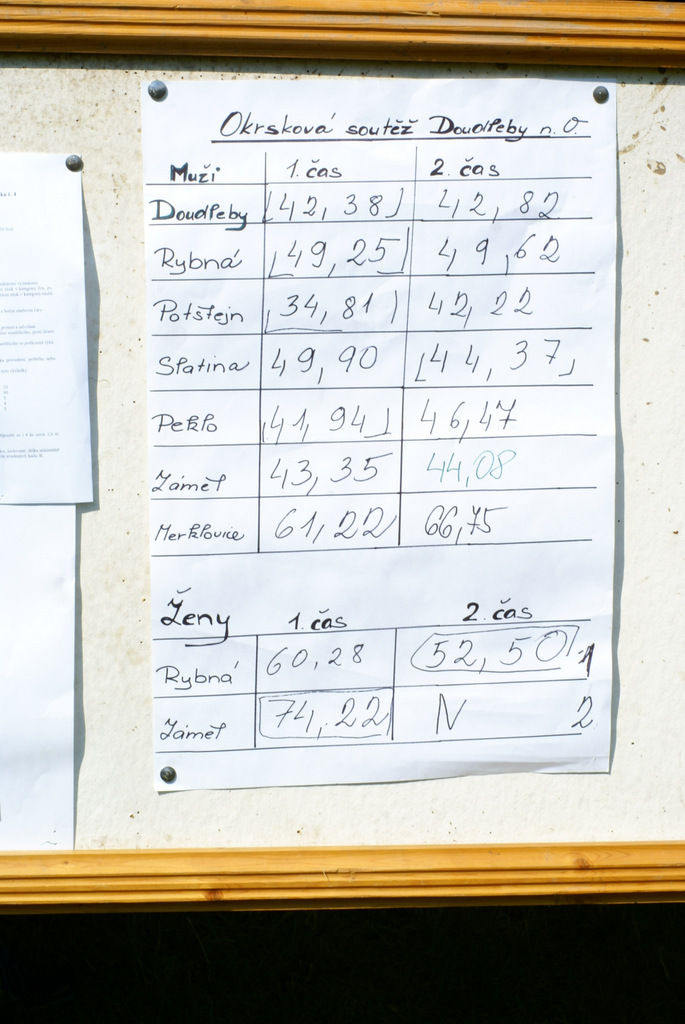 Okrsková soutěž Doudleby n. O.
Muži 1. čas 2. čas
Doudleby 42,38 42,82
Rybná 49,25 49,62
Potštejn 34,81 42,22
Slatina 49,90 44,37
Peklo 41,94 46,47
Záměl 43,35 44,08
Merklovice 61,22 66,75
Ženy 1. čas 2. čas
Rybná 60,28 52,50 1
Záměl 74,22 N 2